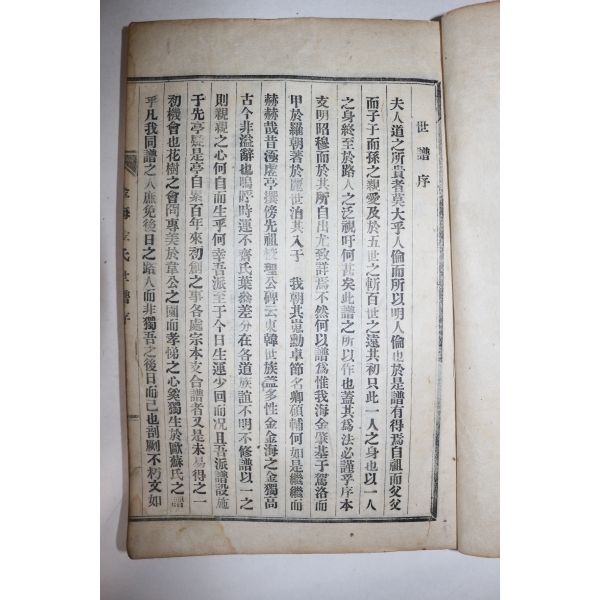 世譜序
夫人道之所貴者莫大乎人倫而所以明人倫也於是譜有得焉自祖而父父
而子子而孫之親愛及於五世之斬百世之遠其初只此一人之身也以一人
之身終至於路人之泛視吁何甚矣此譜之所以作也蓋其爲法必謹乎序本
支明昭穆而於其所自出尤致詳焉不然何以譜爲惟我海金肇基于駕洛而
甲於羅朝著於麗世洎其入于 我朝其嵬勳卓節名卿碩輔何如是繼繼而
赫赫哉昔濯虛亭撰傍先祖校理公碑云東韓世族蓋多性金金海之金獨高
古今非溢辭也嗚呼時運不齊氏葉差分在各道族誼不明不修譜以一之
則親親之心何自而生乎何幸吾派至于今日生運少回而况且吾派譜設施
于先亭是亭自累百年來初創之事各處宗本支會譜者又是未易得之一
初機會也花樹之會罔專美於韋公之園而孝悌之心奚獨生於歐蘇氏之譜
乎凡我同譜之人庶免後日之路人而非獨吾之後日而已也剞劂不朽文如
金海金氏世譜序